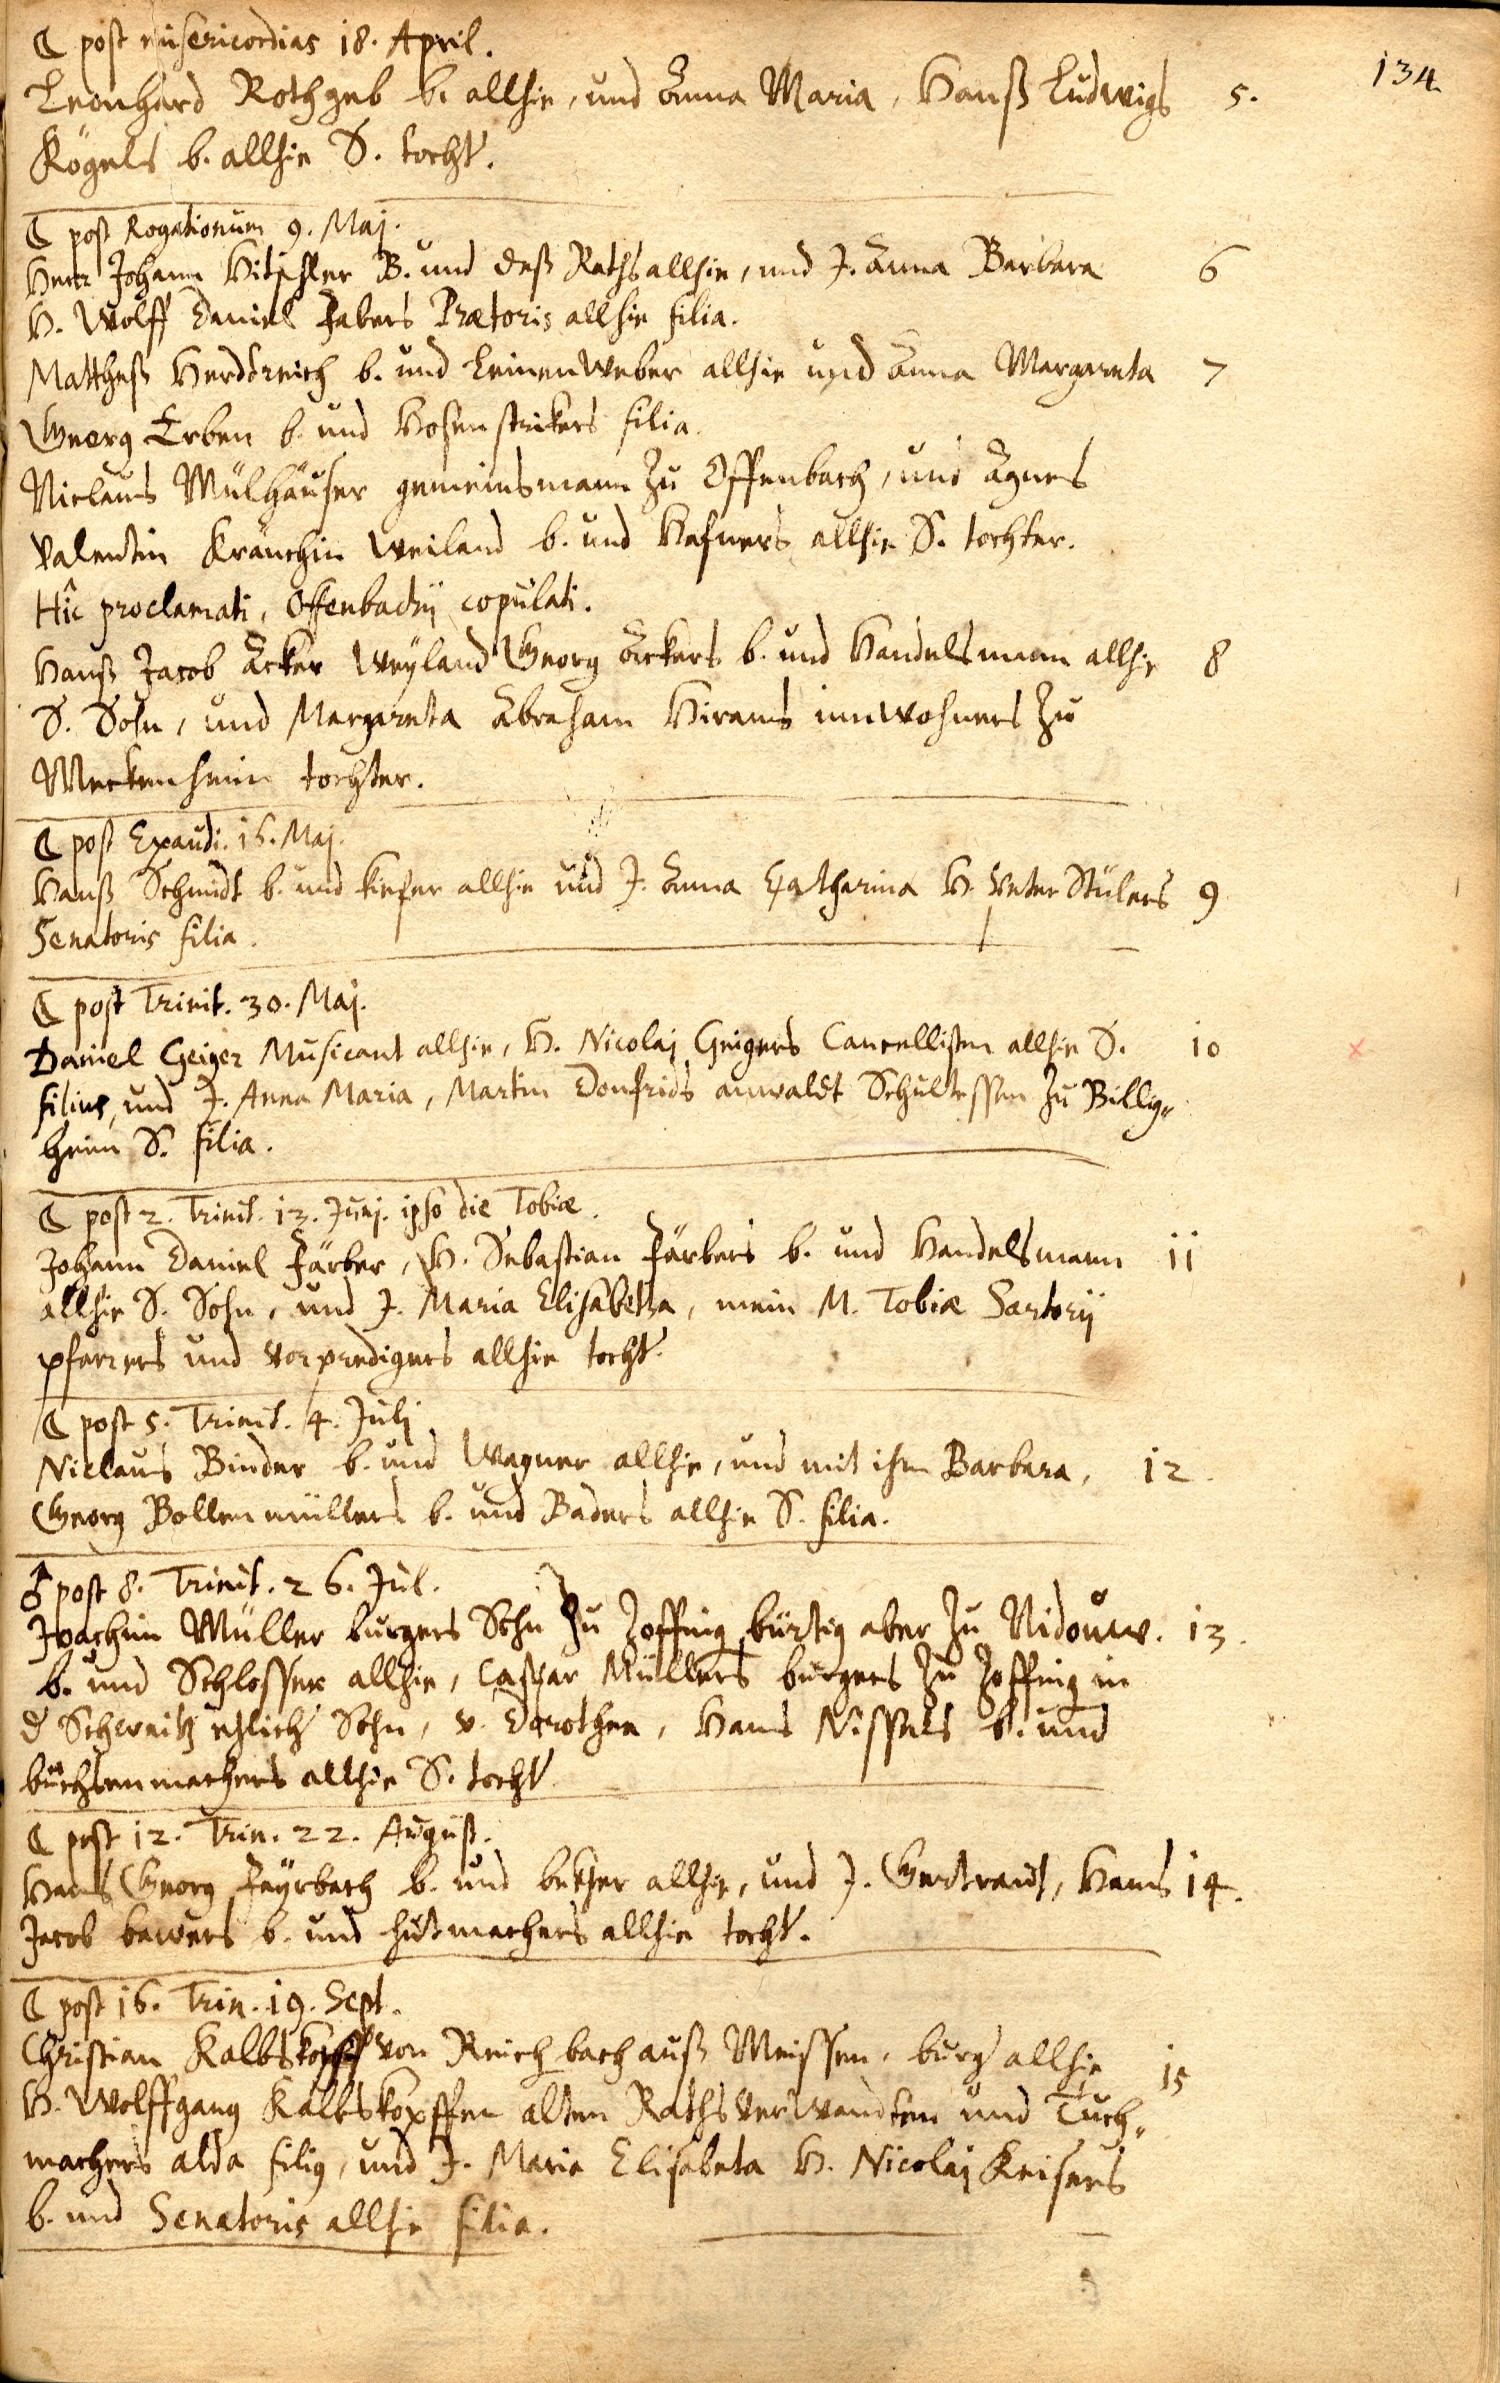 134.
☾ post misericordias 18. April.
Leonhard Rothgeb b. allhie, und Anna Maria, Hanß Ludwigs 5.
Kögels b. allhie S. tocht.
☾ post Rogationum 9. Maj.
Herr Johann Hitschler B. und deß Raths allhie, und J. Anna Barbara 6
H. Wolff Daniel Fabers Prætoris allhie filia.
Mattheß Herdtreich b. und Leinenweber allhie und Anna Margareta 7
Georg Erben b. und Hosenstrikers filia.
Niclaus Mülhäuser gemeinsmann zu Offenbach, und Agnes
Valentin Kränchin weiland b. und Hafners allhie S. tochter.
Hîc proclamati, Offenbachij copulati.
Hanß Jacob Acker weyland Georg Ackers b. und Handelsmann allhie 8
S. Sohn, und Margareta Abraham Hirams innwohners zu
Meckenheim tochter.
☾ post Exaudi. 16. Maj.
Hanß Schmidt b. und kiefer allhie und J. Anna Catharina H. Peter Stülers 9
Senatoris filia.
☾ post Trinit. 30. Maj.
Daniel Geiger Musicant allhie, H. Nicolaj Geigers Cancellisten allhie S. 10
filius, und J. Anna Maria, Martin Donfrids anwaldt Schultessen zu Billig-
heim S. filia.
☾ post 2. Trinit. 13. Junj. ipso die Tobiæ.
Johann Daniel Färber, H. Sebastian Färbers b. und Handelsmann 11
allhie S. Sohn, und J. Maria Elisabetha, mein M. Tobiæ Sartorij
pfarrers und vorpredigers allhie tocht.
☾ post 5. Trinit. 4. Julj
Niclaus Binder b. und Wagner allhie, und mit ihm Barbara, 12.
Georg Bollenmüllers b. und Baders allhie S. filia.
♂ post 8. Trinit. 26. Jul.
Joachim Müller burgers Sohn zu Zoffing bürtig aber zu Nidouw. 13.
b. und Schlosser allhie, Caspar Müllers burgers zu Zoffing in
d Schweitz ehlich Sohn, v. Dorothea, Hans Nissels b. und
büchsenmachers allhie S. tocht
☾ post 12. Trin. 22. August.
Hans Georg Feyrbach b. und bekher allhie, und J. Gertraudt, Hans 14.
Jacob bawers b. und hutmachers allhie tocht.
☾ post 16. Trin. 19. Sept.
Christian Kalbskopff von Reichbach auß Meissen, burg allhie 15
H. Wolffgang Kalbskopffen alten Rathsverwandten und Tuch-
machers alda filius, und J. Maria Elisabeta H. Nicolaj Keisers
b. und Senatoris allhie filia.